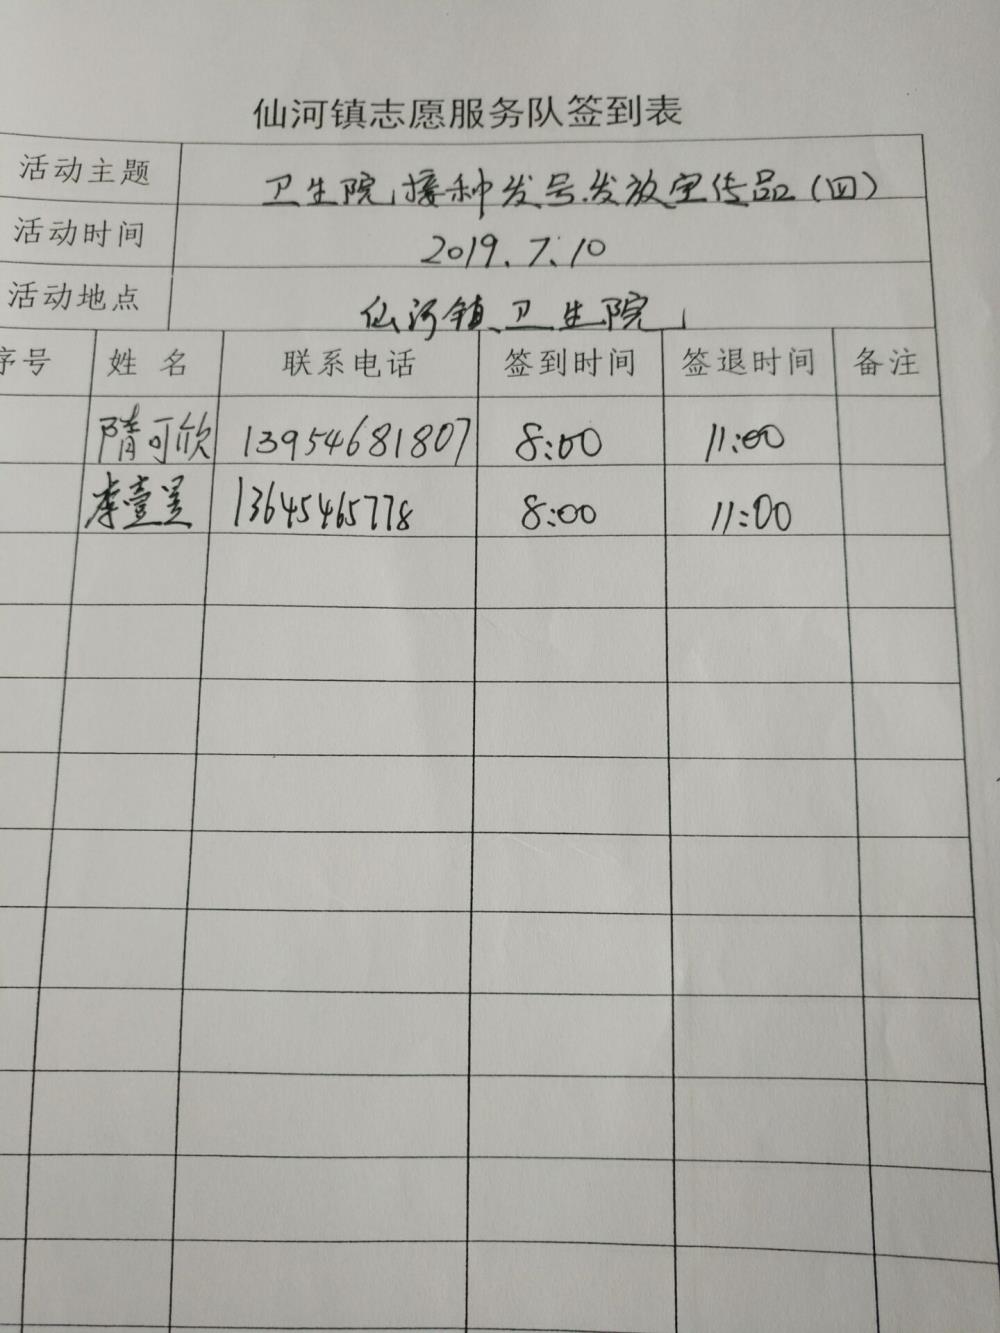 仙河镇志愿服务队签到表
活动主题 卫生院接种发号.发放宣传品(四)
活动时间 2019.7.10
活动地点 仙河镇卫生院
序号 姓名 联系电话 签到时间 签退时间 备注
隋可欣 13954681807 8:00 11:00
李壹昱 13645465778 8:00 11:00